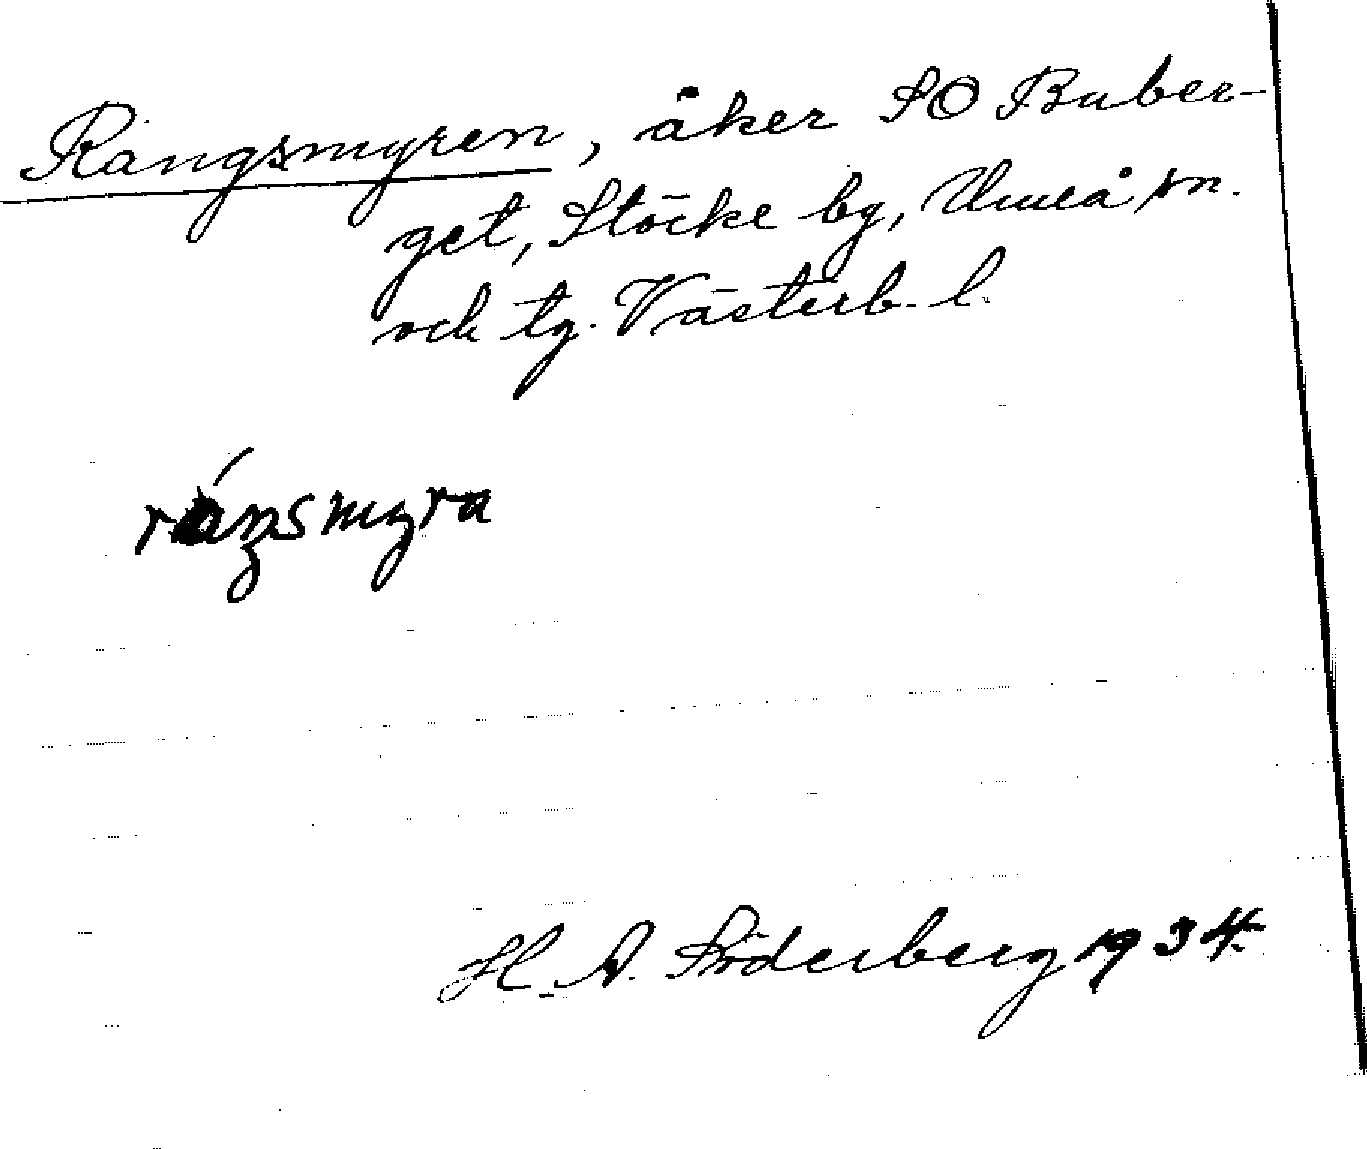 Rångsmyren, åker SO Buber-
get, Stöcke by, Umeå sn.
och tg. Västerb. l.
råŋsmyra
H. A. Söderberg 1934